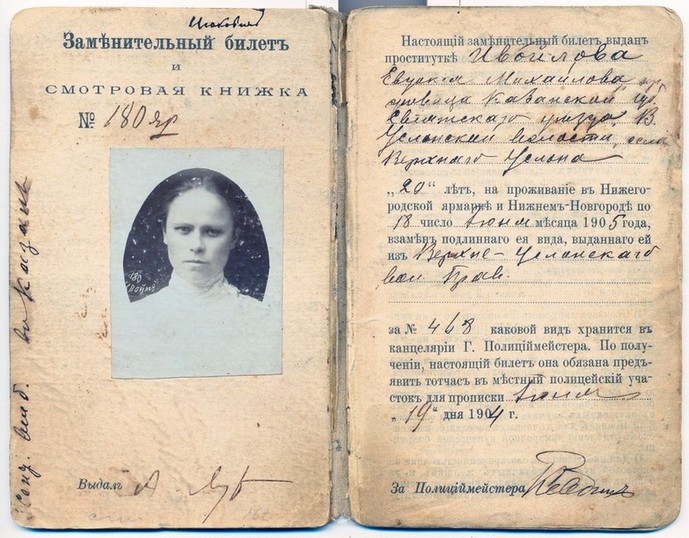 Замѣнительный билетъ
и
СМОТРОВАЯ КНИЖКА
№ 180 яр
180
Выдалъ А.
Настоящій замѣнительный билетъ выданъ
проституткѣ Ивойлова
Евдокія Михайлова, кр.
Казанской губ.
уѣзда, В.
Услонской волости, села
Верхняго Услона
„20“ лѣтъ, на проживаніе въ Нижего-
родской ярмаркѣ и Нижнемъ-Новгородѣ по
18 число іюня мѣсяца 1905 года,
взамѣнъ подлиннаго ея вида, выданнаго ей
изъ Верхне-Услонскаго
вол. Прав.
за № 468 каковой видъ хранится въ
канцеляріи Г. Полиціймейстера. По полу-
ченіи, настоящій билетъ она обязана предъ-
явить тотчасъ въ мѣстный полицейскій уча-
стокъ для прописки іюня
„19“ дня 1904 г.
За Полиціймейстера